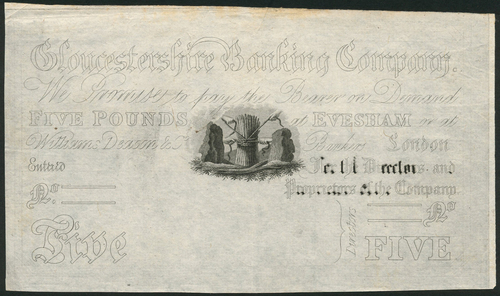 Gloucestershire Banking Company.
We Promise to pay the Bearer on Demand
FIVE POUNDS at EVESHAM or at
Williams Deacon & Bankers London
Entd. For the Directors and
Proprietors of the Company
No. No.
Five FIVE